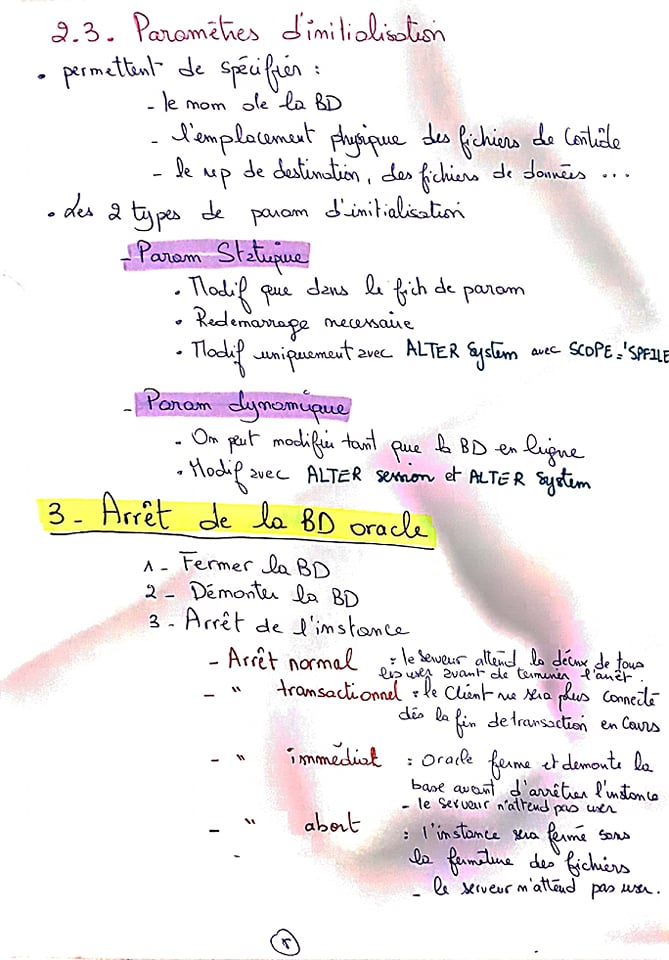 2.3. Paramètres d'initialisation
• permettent de spécifier :
- le nom de la BD
- l'emplacement physique des fichiers de contrôle
- le rep de destination, des fichiers de données ...
• Les 2 types de param d'initialisation
- Param Statique
• Modif que dans le fich de param
• Redemarrage necessaire
• Modif uniquement avec ALTER System avec SCOPE='SPFILE
- Param dynamique
• On peut modifier tant que la BD en ligne
• Modif avec ALTER session et ALTER System
3 - Arrêt de la BD oracle
1 - Fermer la BD
2 - Démonter la BD
3 - Arrêt de l'instance
- Arrêt normal : le serveur attend la décnx de tous
les user avant de terminer l'arrêt.
- " transactionnel : le client ne sera plus connecté
dés la fin de transaction en cours
- " immédiat : Oracle ferme et demonte la
base avant d'arrêter l'instance
- le serveur n'attend pas user
- " abort : l'instance sera fermé sans
la fermeture des fichiers
- le serveur n'attend pas user.